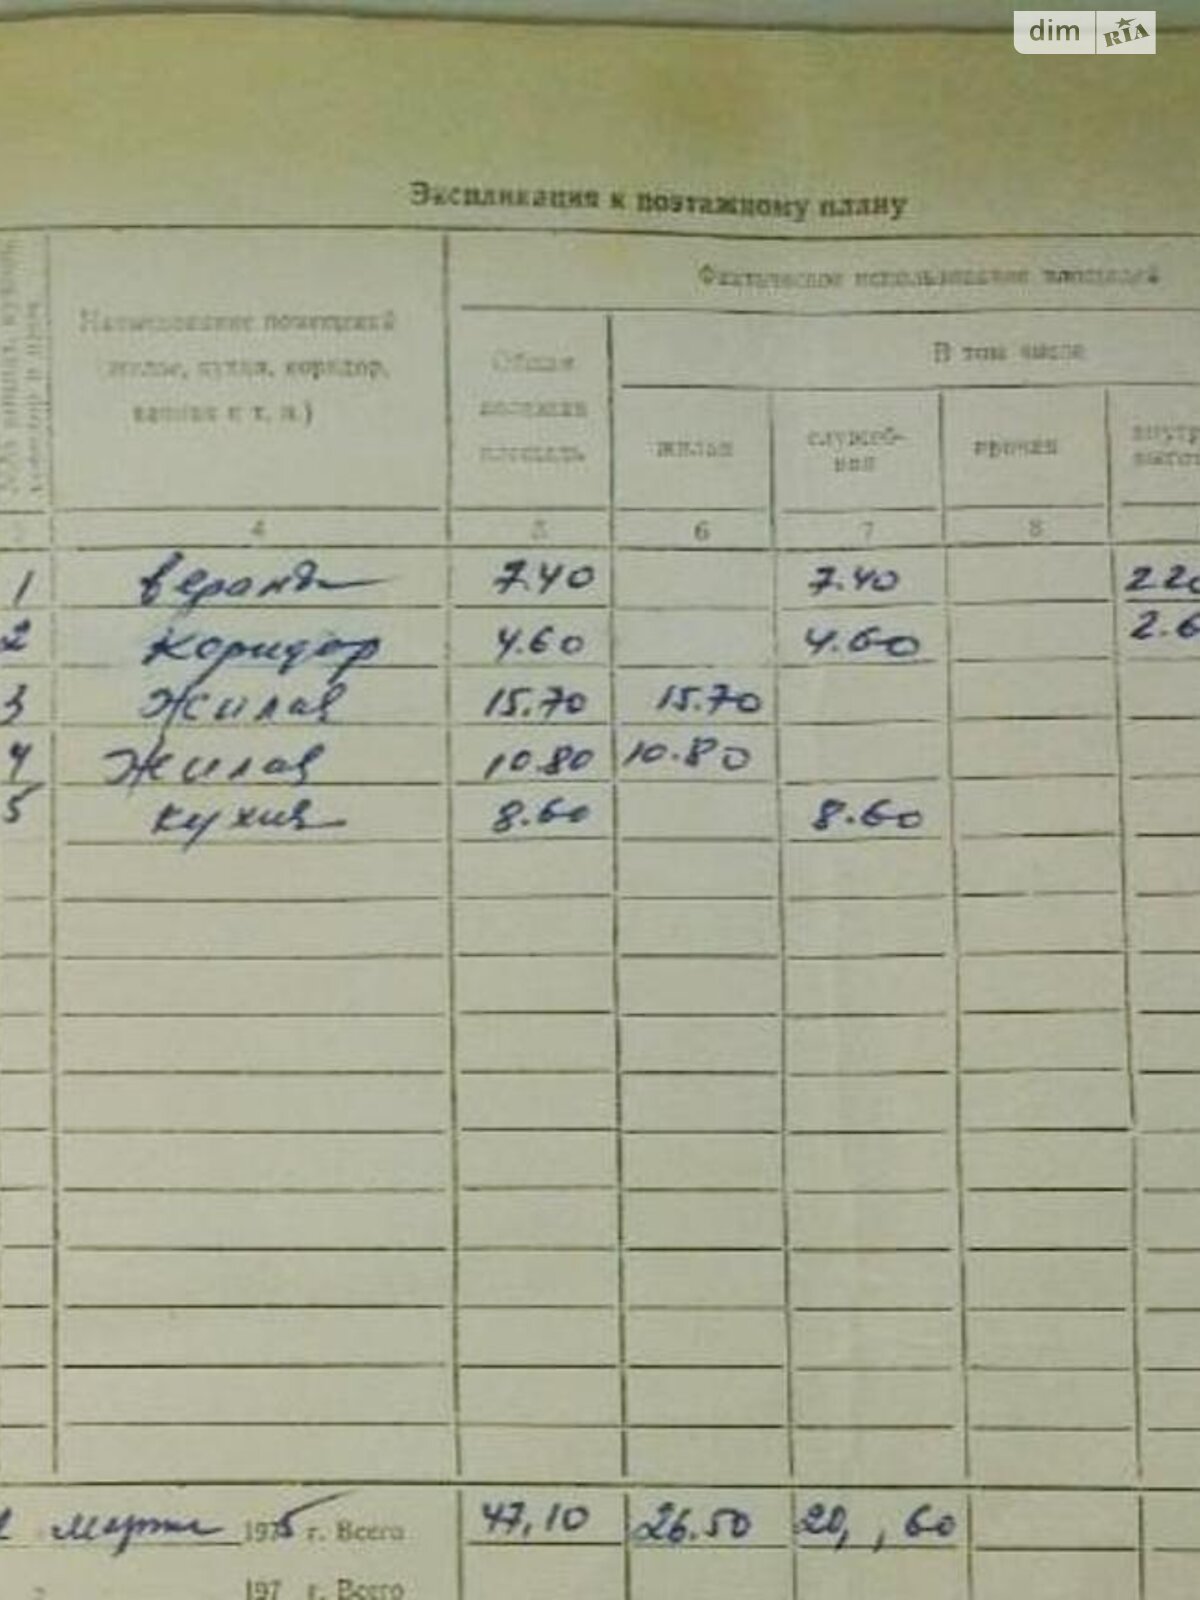 dim RIA
Экспликация к поэтажному плану
Фактическое использование площадей
Наименование помещений
(жилье, кухня, коридор,
ванная и т. п.)
Общая
полезная
площадь
В том числе
жилая
служеб-
ная
прочая
внутр
высот
4 5 6 7 8
1 веранда 7.40 7.40 2.20
2 коридор 4.60 4.60 2.6
3 Жилая 15.70 15.70
4 Жилая 10.80 10.80
5 кухня 8.60 8.60
марта 1975 г. Всего 47,10 26.50 20,,60
197 г. Всего